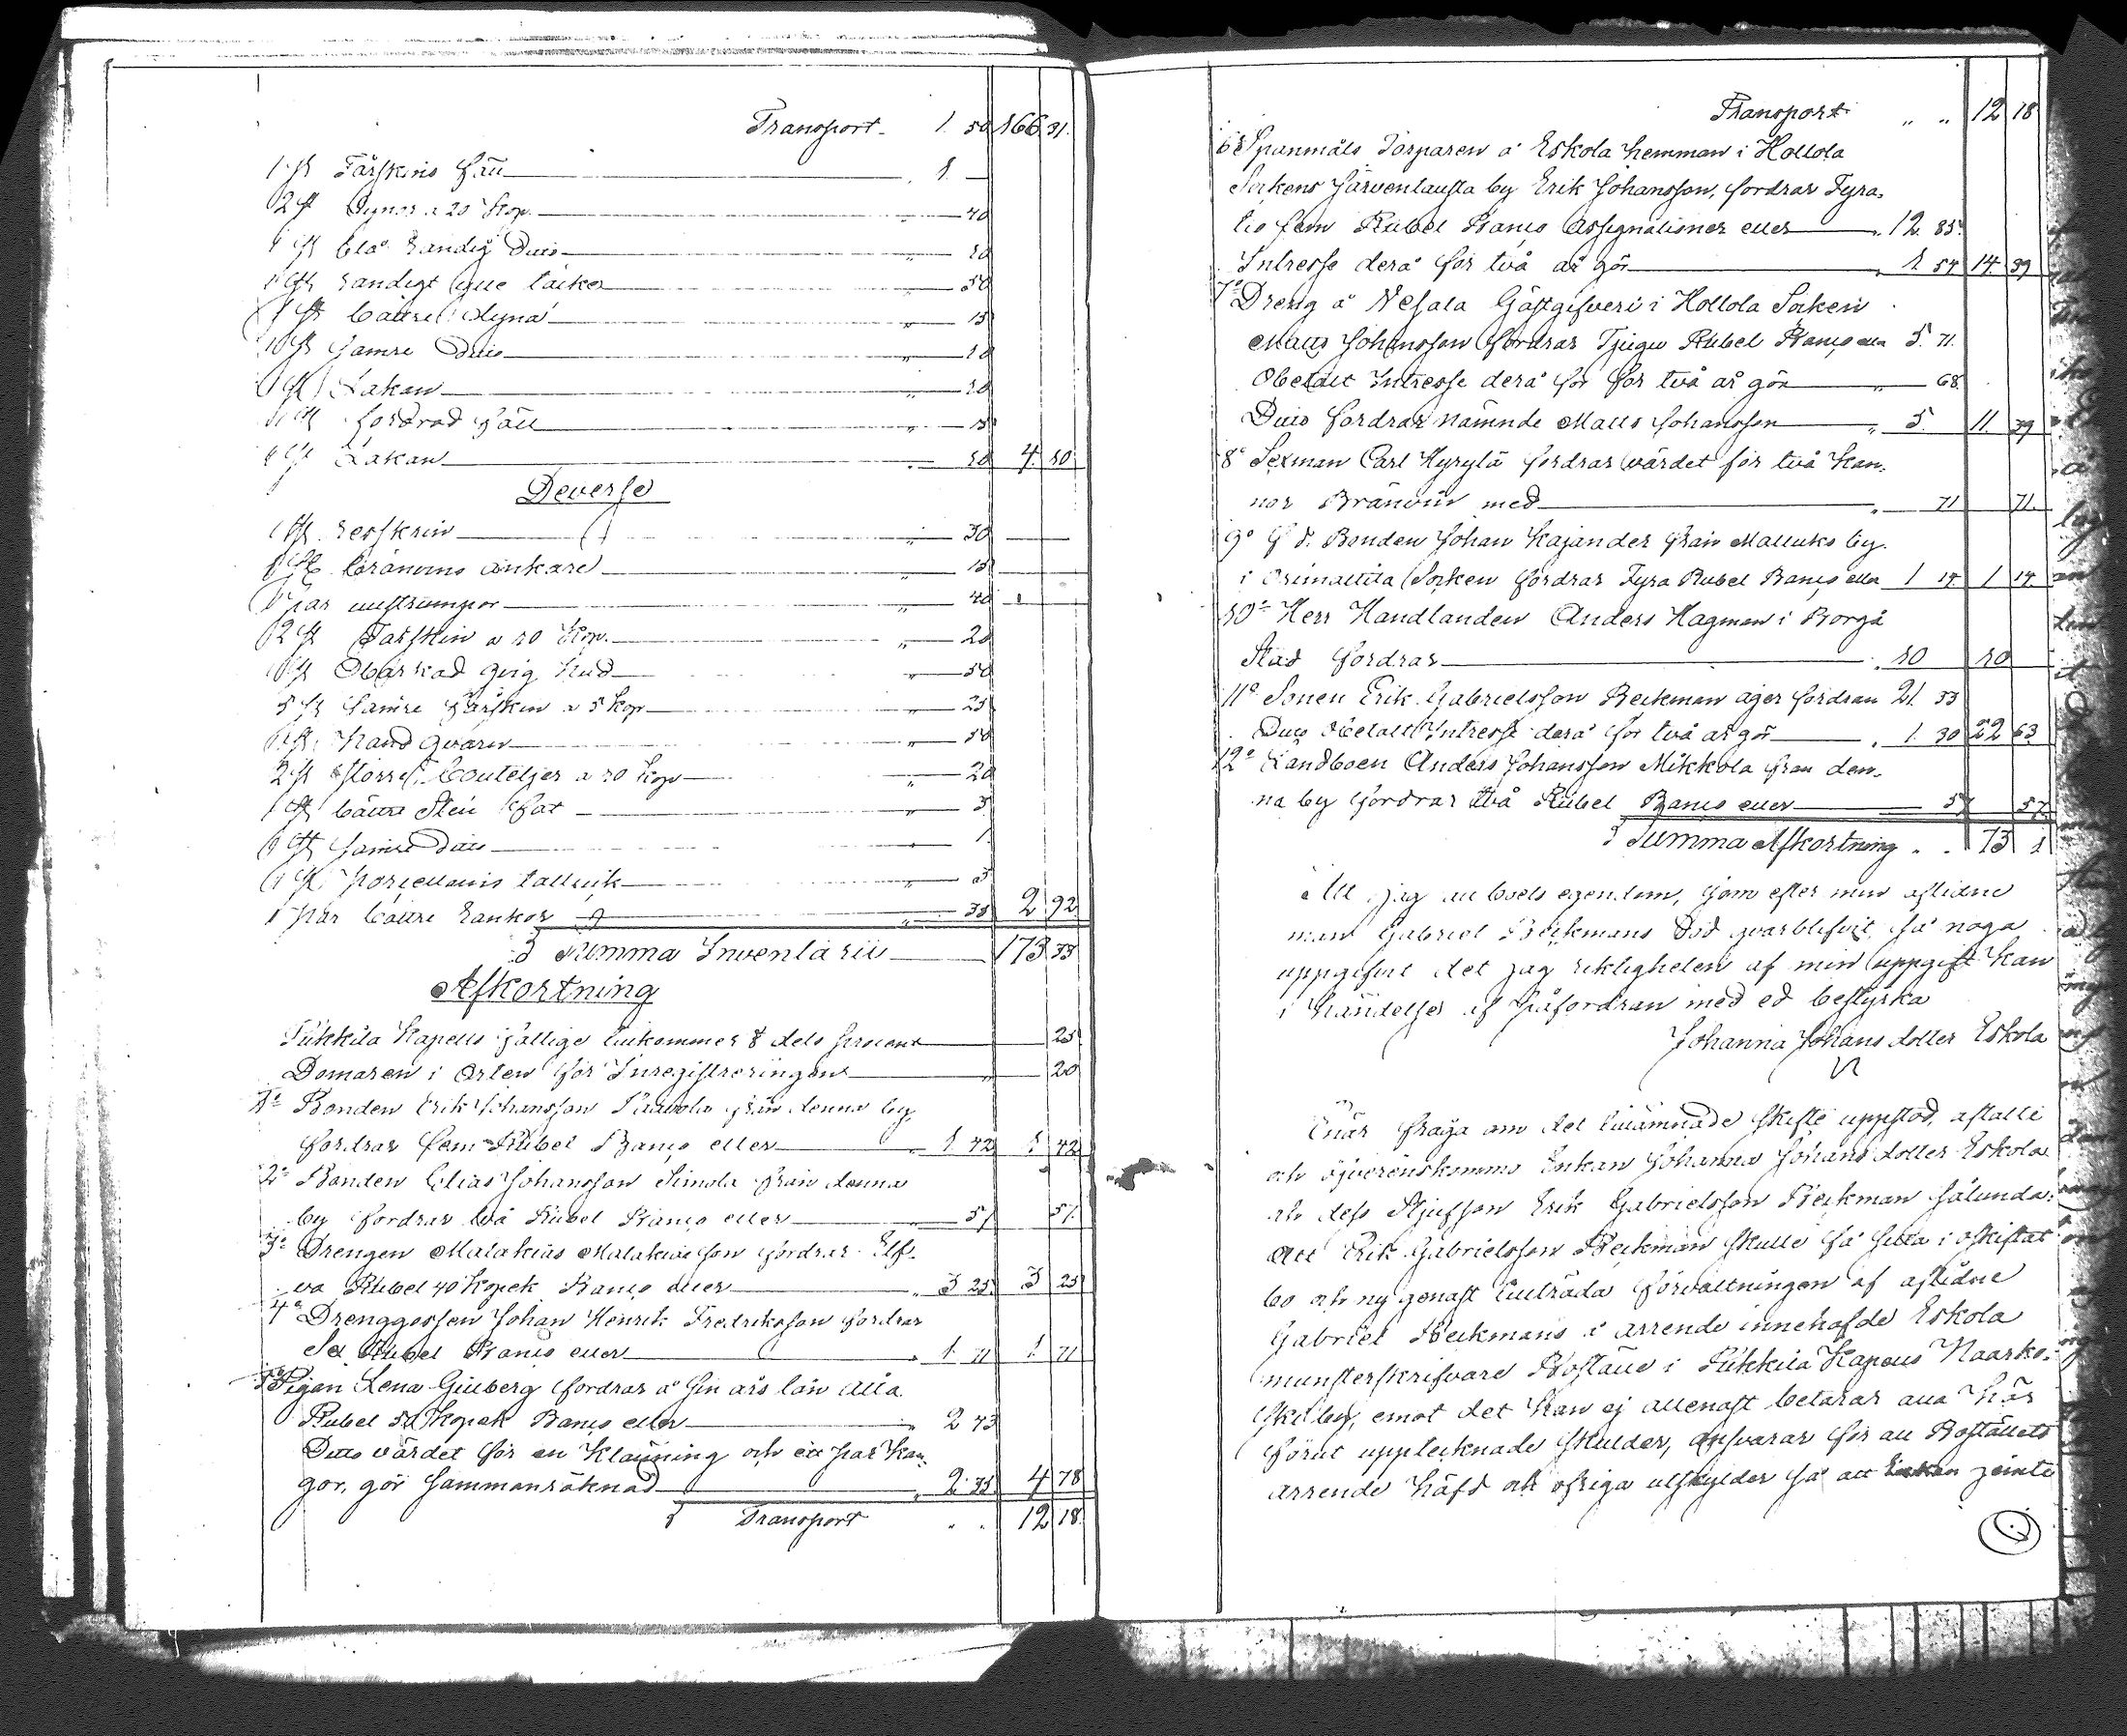 Transport 1. 50 166 31.
1 st Fårskins fäll 1. —
2 st Dynor a 20 Kop. 40
1 st blå randig Ditto 20
1 st randigt 50
1 st bättre Dyna 15
1 st sämre Ditto 10
1 st Lakan 20
1 st fordrad fäll 15
1 st Lakan 10 4. 50
Deverse
1 st resskrin 30
1 st bränvins ankare 15
1 par ullstrumpor 40
2 st Fårskin a 10 Kop. 20
1 st Obarkad qvig hud 50
5 st sämre Fårskin a 5 Kop 25
1 st Hand qvarn 50
2 st större Bouteljer a 10 Kop 20
1 st bättre Sten fat 3
1 st sämre Ditto 1.
1 st porcellains tallrik 3
1 par bättre rankor 35 2 92
Summa Inventarii 173 33
Afkortning
Kapells fattige tillkommer 8 dels procent 25
Domaren i Orten för Inregistreringen 20
1o Bonden Erik Johansson från denna by
fordrar fem Rubel Banco eller 1 42 1 42
2o Bonden Elias Johansson Simola från denna
by fordrar två Rubel Banco eller 57 57.
3o Drengen Malakias Malakiasson fordrar Elf-
va Rubel 40 Kopek Banco eller 3 25 3 25
4o Drenggossen Johan Henrik Fredriksson fordrar
Sex Rubel Banco eller 1. 71 1. 71
5o Pigan Lena Ginberg fordrar å sin års lön åtta
Rubel 50 Kopek Banco eller 2 43
Ditto värdet för en Klänning och ett par Kän-
gor, gör sammanräknad 2 35 4 78
Transport „ „ 12 18.
Transport „ „ 12 18
6o Spanmåls Torparen å Eskola hemman i Hollola
Sockens Järventausta by Erik Johansson, fordrar Fyra-
tio fem Rubel Banco Assignationer eller 12 85
Intresse derå för två år gör 1 54 14 39
7o Dreng å Gästgifveri i Hollola Socken
Matts Johansson fordrar Tjugu Rubel Banco eller 5. 71.
Obetalt Intresse derå för för två år gör 68
Ditto fordrar nämnde Matts Johansson 5. 11. 39
8o Sexman Carl Hyrylä fordrar värdet för två Kan-
nor Bränvin med 71 71.
9o f d. Bonden Johan Kajander från Mallusko by
i Orimattila Socken fordrar Fyra Rubel Banco eller 1 14 1 14
10o Herr Handlanden Anders Hagman i Borgå
Stad fordrar 10 10
11o Sonen Erik Gabrielsson Beckman äger fordran 21. 33
Ditto Obetalt Intresse derå för två år gör 1. 30 22 63
12o Landboen Anders Johansson Mikkola från den-
na by fordrar två Rubel Banco eller 57 57.
Summa Afkortning „ „ 73 1
Att jag all boets egendom, som efter min aflidne
man Gabriel Beckmans Död qvarblifvit, så noga
uppgifvit det jag riktigheten af min uppgift kan
i händelse af påfordran med ed bestyrka
Johanna Johans dotter Eskola
Enär fråga om det skifte uppstod, aftalte
och öfverenskommo Enkan Johanna Johans dotter Eskola
och dess Stjufson Erik Gabrielsson Beckman sålunda:
att Erik Gabrielsson Beckman skulle få sitta i oskiftat
bo och nu genast tillträda förvaltningen af aflidne
Gabriel Beckmans å arrende innehafde Eskola
munsterskrifvare Boställe i Kapells
by, emot det han ej allenast betalar alla här
förut upptecknade skulder, ansvarar för all Boställets
arrende häfd och öfriga utskylder så att Enkan